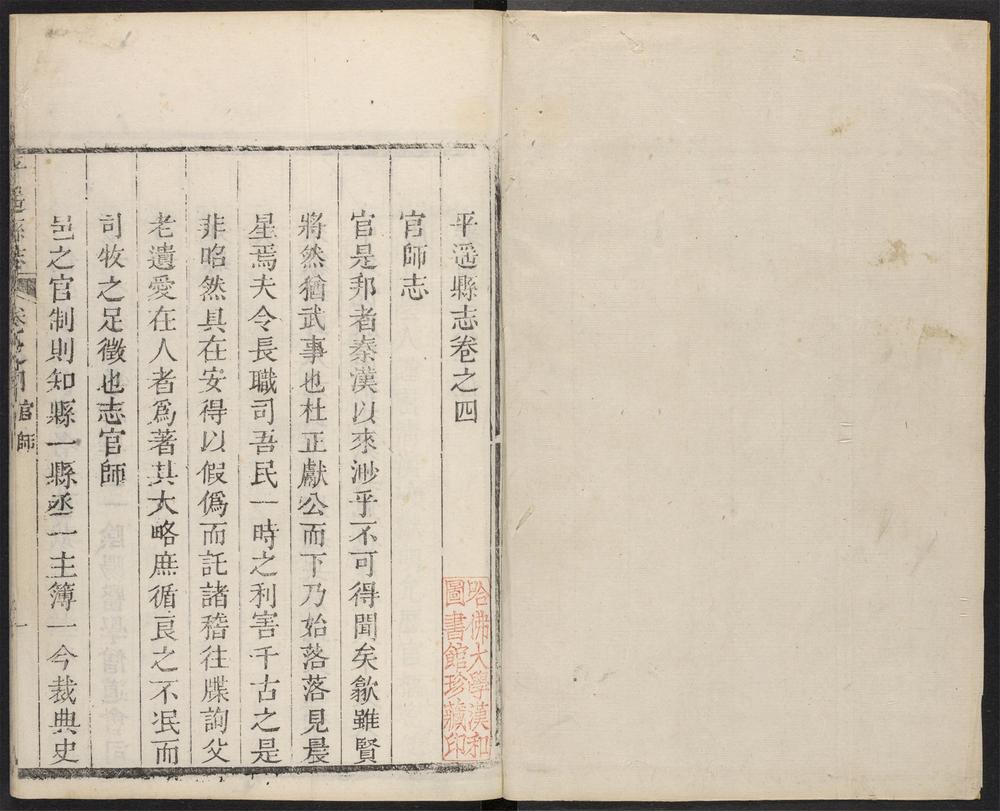 平遥縣志卷之四
哈佛大學漢和
圖書館珍藏印
官師志
官是邦者秦漢以來渺乎不可得聞矣歙雖賢
將然猶武事也杜正獻公而下乃始落落見晨
星焉夫令長職司吾民一時之利害千古之是
非昭然具在安得以假僞而託諸稽往牒詢父
老遺愛在人者爲著其大略庶循良之不泯而
司牧之足徵也志官師
邑之官制則知縣一縣丞一主簿一今裁典史
平遥縣志
卷之四
官師
一